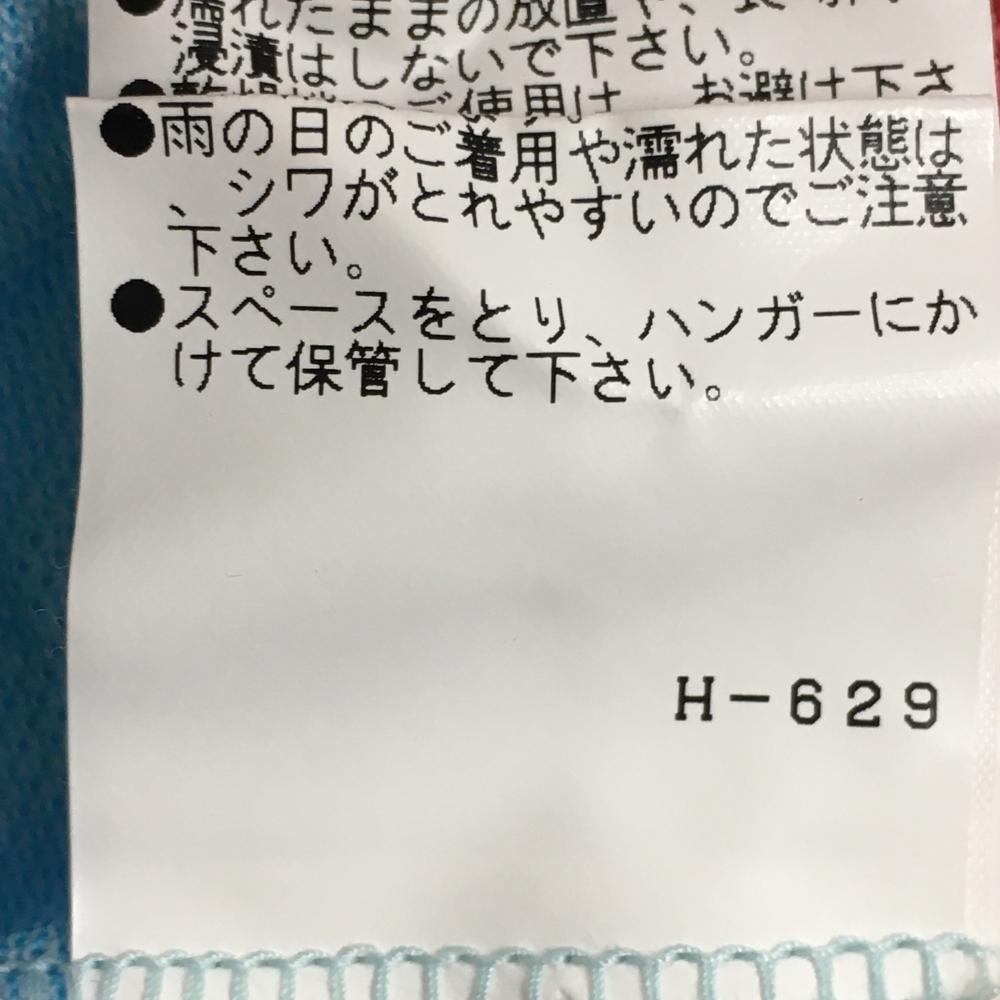 濡れたままの放置や、長時
浸漬はしないで下さい。
ご使用は、お避け下さ
●雨の日のご着用や濡れた状態は
、シワがとれやすいのでご注意
下さい。
●スペースをとり、ハンガーにか
けて保管して下さい。
H-629